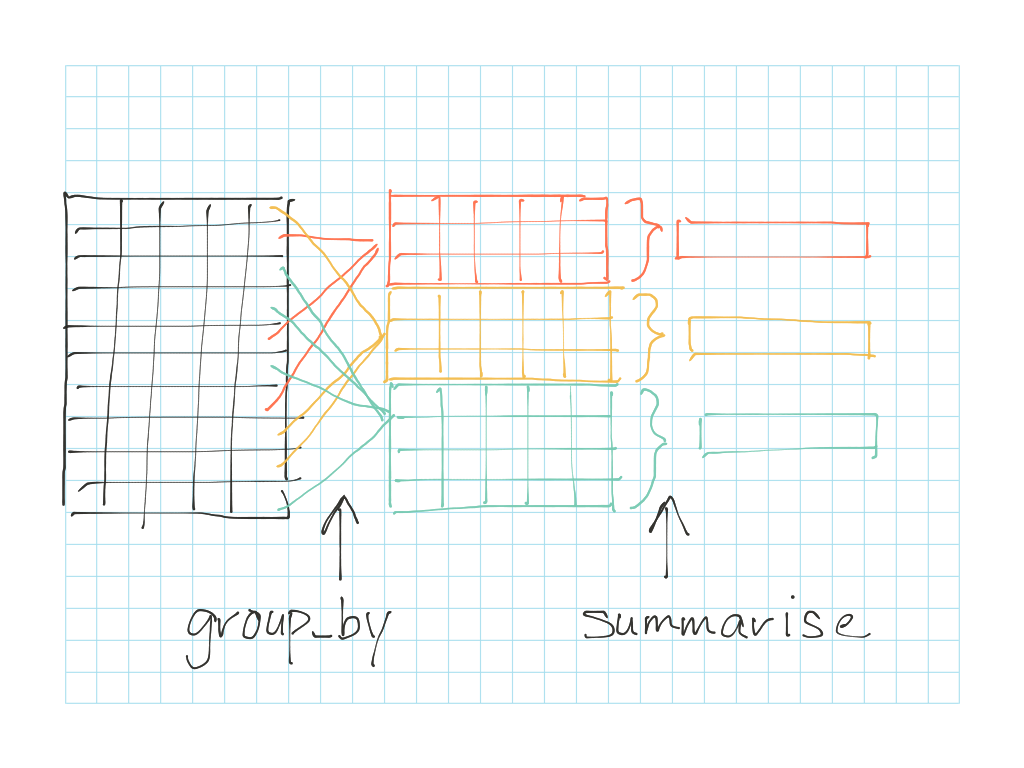 group_by summarise